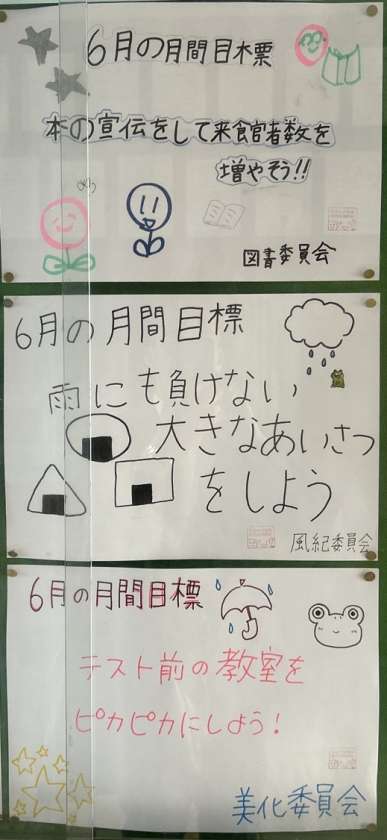 6月の月間目標
本の宣伝をして来館者数を
増やそう!!
図書委員会
6月の月間目標
雨にも負けない
大きなあいさつ
をしよう
風紀委員会
6月の月間目標
テスト前の教室を
ピカピカにしよう!
美化委員会